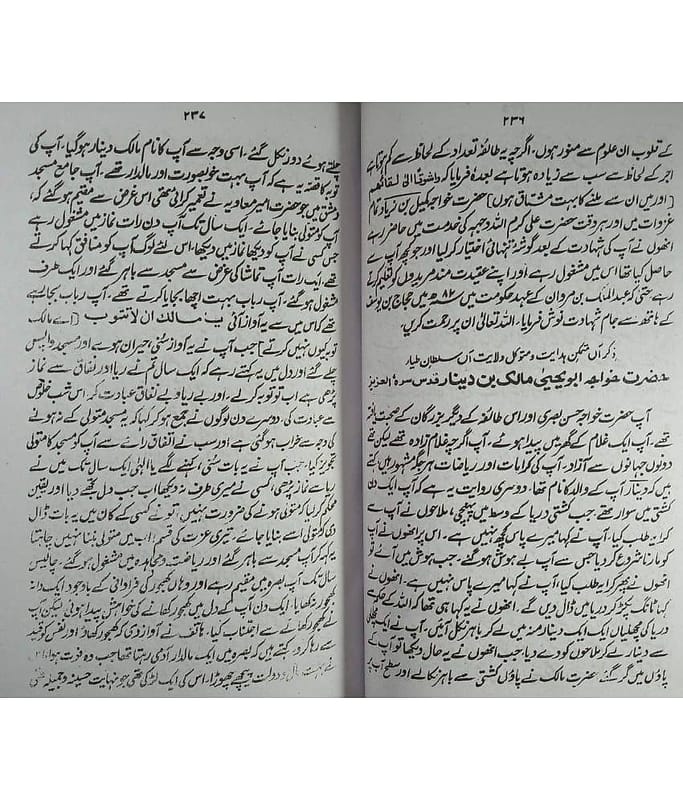 ۲۳۶
کے قلوب ان علوم سے منور ہوں۔ اگرچہ یہ طائفہ تعداد کے لحاظ سے کم ہوتا ہے
اجر کے لحاظ سے سب سے زیادہ ہوتا ہے بعدہٗ فرمایا کہ واشوقا الی لقائھم
[اور میں ان سے ملنے کا بہت مشتاق ہوں] حضرت خواجہ کمیل بن زیاد تمام
غزوات میں اور ہر وقت حضرت علی کرم اللہ وجہہ کی خدمت میں حاضر رہے
انھوں نے آپ کی شہادت کے بعد گوشۂ تنہائی اختیار کر لیا اور جو کچھ آپ سے
حاصل کیا تھا اس میں مشغول رہے اور اپنے عقیدت مند مریدوں کو تعلیم کرتے
رہے حتی کہ عبد الملک بن مروان کے عہد حکومت میں ۸۲ھ میں حجاج بن یوسف
کے ہاتھ سے جام شہادت نوش فرمایا۔ اللہ تعالیٰ ان پر رحمت کریں۔
ذکر آں متمکن ہدایت و متوکل ولایت آں سلطان طیار
حضرت خواجہ ابو یحییٰ مالک بن دینار قدس سرہ العزیز
آپ حضرت خواجہ حسن بصری اور اس طائفہ کے دیگر بزرگان کے صحبت یافتہ
تھے۔ آپ ایک غلام کے گھر میں پیدا ہوئے۔ آپ اگرچہ غلام زادہ تھے لیکن
دونوں جہانوں سے آزاد۔ آپ کی کرامات اور ریاضات ہر جگہ مشہور ہیں کہتے
ہیں کہ دینار آپ کے والد کا نام تھا۔ دوسری روایت یہ ہے کہ آپ ایک دن
کشتی میں سوار تھے۔ جب کشتی دریا کے وسط میں پہنچی، ملاحوں نے آپ سے
کرایہ طلب کیا، آپ نے کہا میرے پاس کچھ نہیں ہے۔ اس پر انھوں نے آپ
کو مارنا شروع کر دیا جس سے آپ بے ہوش ہو گئے۔ جب ہوش میں آئے تو
انھوں نے پھر کرایہ طلب کیا، آپ نے کہا میرے پاس نہیں ہے۔ انھوں نے
کہا ٹانگ پکڑ کر دریا میں ڈال دیں گے۔ انھوں نے یہ کہا ہی تھا کہ اللہ کے حکم سے
دریا کی مچھلیاں ایک ایک دینار منہ میں لے کر باہر نکل آئیں۔ آپ نے ایک مچھلی
سے دینار لے کر ملاحوں کو دے دیا۔ جب انھوں نے یہ حال دیکھا تو آپ کے
پاؤں میں گر گئے۔ حضرت مالک نے پاؤں کشتی سے باہر نکالے اور سطح آب پر
۲۳۷
چلتے ہوئے دور نکل گئے۔ اسی وجہ سے آپ کا نام مالک دینار ہو گیا۔ آپ کی
توبہ کا قصہ یہ ہے کہ آپ بہت خوبصورت اور مالدار تھے۔ آپ جامع مسجد
دمشق میں جو حضرت امیر معاویہ نے تعمیر کرائی تھی اس غرض سے مقیم ہو گئے کہ
آپ کو متولی بنایا جائے۔ ایک سال تک آپ دن رات نماز میں مشغول رہے
جس کسی نے آپ کو دیکھا نماز میں دیکھا، اس لئے لوگ آپ کو منافق کہا کرتے
تھے۔ ایک رات آپ تماشا کی غرض سے مسجد سے باہر گئے اور ایک طرف
مشغول ہو گئے۔ آپ رباب بہت اچھا بجایا کرتے تھے۔ آپ رباب بجا رہے
تھے کہ اس میں سے یہ آواز آئی یا مالک ان لا تتوب [اے مالک
تو کیوں نہیں کرتے] جب آپ نے یہ آواز سنی، حیران ہوئے اور مسجد واپس
چلے گئے اور دل میں یہ کہتے رہے کہ ایک سال تم نے ریا اور نفاق سے نماز
پڑھی ہے اب تو توبہ کر لے۔ اور بے ریا و بے نفاق عبادت کر۔ اس شب خلوص
سے عبادت کی۔ دوسرے دن لوگوں نے جمع ہو کر کہا کہ یہ مسجد متولی کے نہ ہونے
کی وجہ سے خراب ہو گئی ہے اور سب نے اتفاق رائے سے آپ کو مسجد کا متولی
تجویز کیا، جب آپ نے یہ بات سنی، کہنے لگے یا الٰہی ایک سال تک میں نے
ریا سے نماز پڑھی، کسی نے میری طرف نہ دیکھا اب جب دل تجھے دیا اور یقین
محکم کر لیا کہ متولی ہونے کی ضرورت نہیں، تو نے کسی کے کان میں یہ بات ڈال
دی کہ متولی اسے بنایا جائے۔ تیری عزت کی قسم، اب میں متولی بننا نہیں چاہتا
یہ کہہ کر آپ مسجد سے باہر گئے اور ریاضت و مجاہدہ میں مشغول ہو گئے۔ چالیس
سال تک آپ بصرہ میں مقیم رہے اور وہاں کھجور کی فراوانی کے باوجود ایک دانہ
کھجور نہ کھایا۔ ایک دن آپ کے دل میں کھجور کھانے کی خواہش پیدا ہوئی لیکن آپ
نے کھجور کھانے سے اجتناب کیا۔ ہاتف نے آواز دی کہ کھجور کھاؤ اور نفس کو قید
سے رہا کرو۔ کہتے ہیں کہ بصرہ میں ایک مالدار آدمی رہتا تھا جب وہ فوت ہوا، اس
نے بہت مال و دولت پیچھے چھوڑا۔ اس کی ایک لڑکی تھی جو نہایت حسینہ و جمیلہ تھی